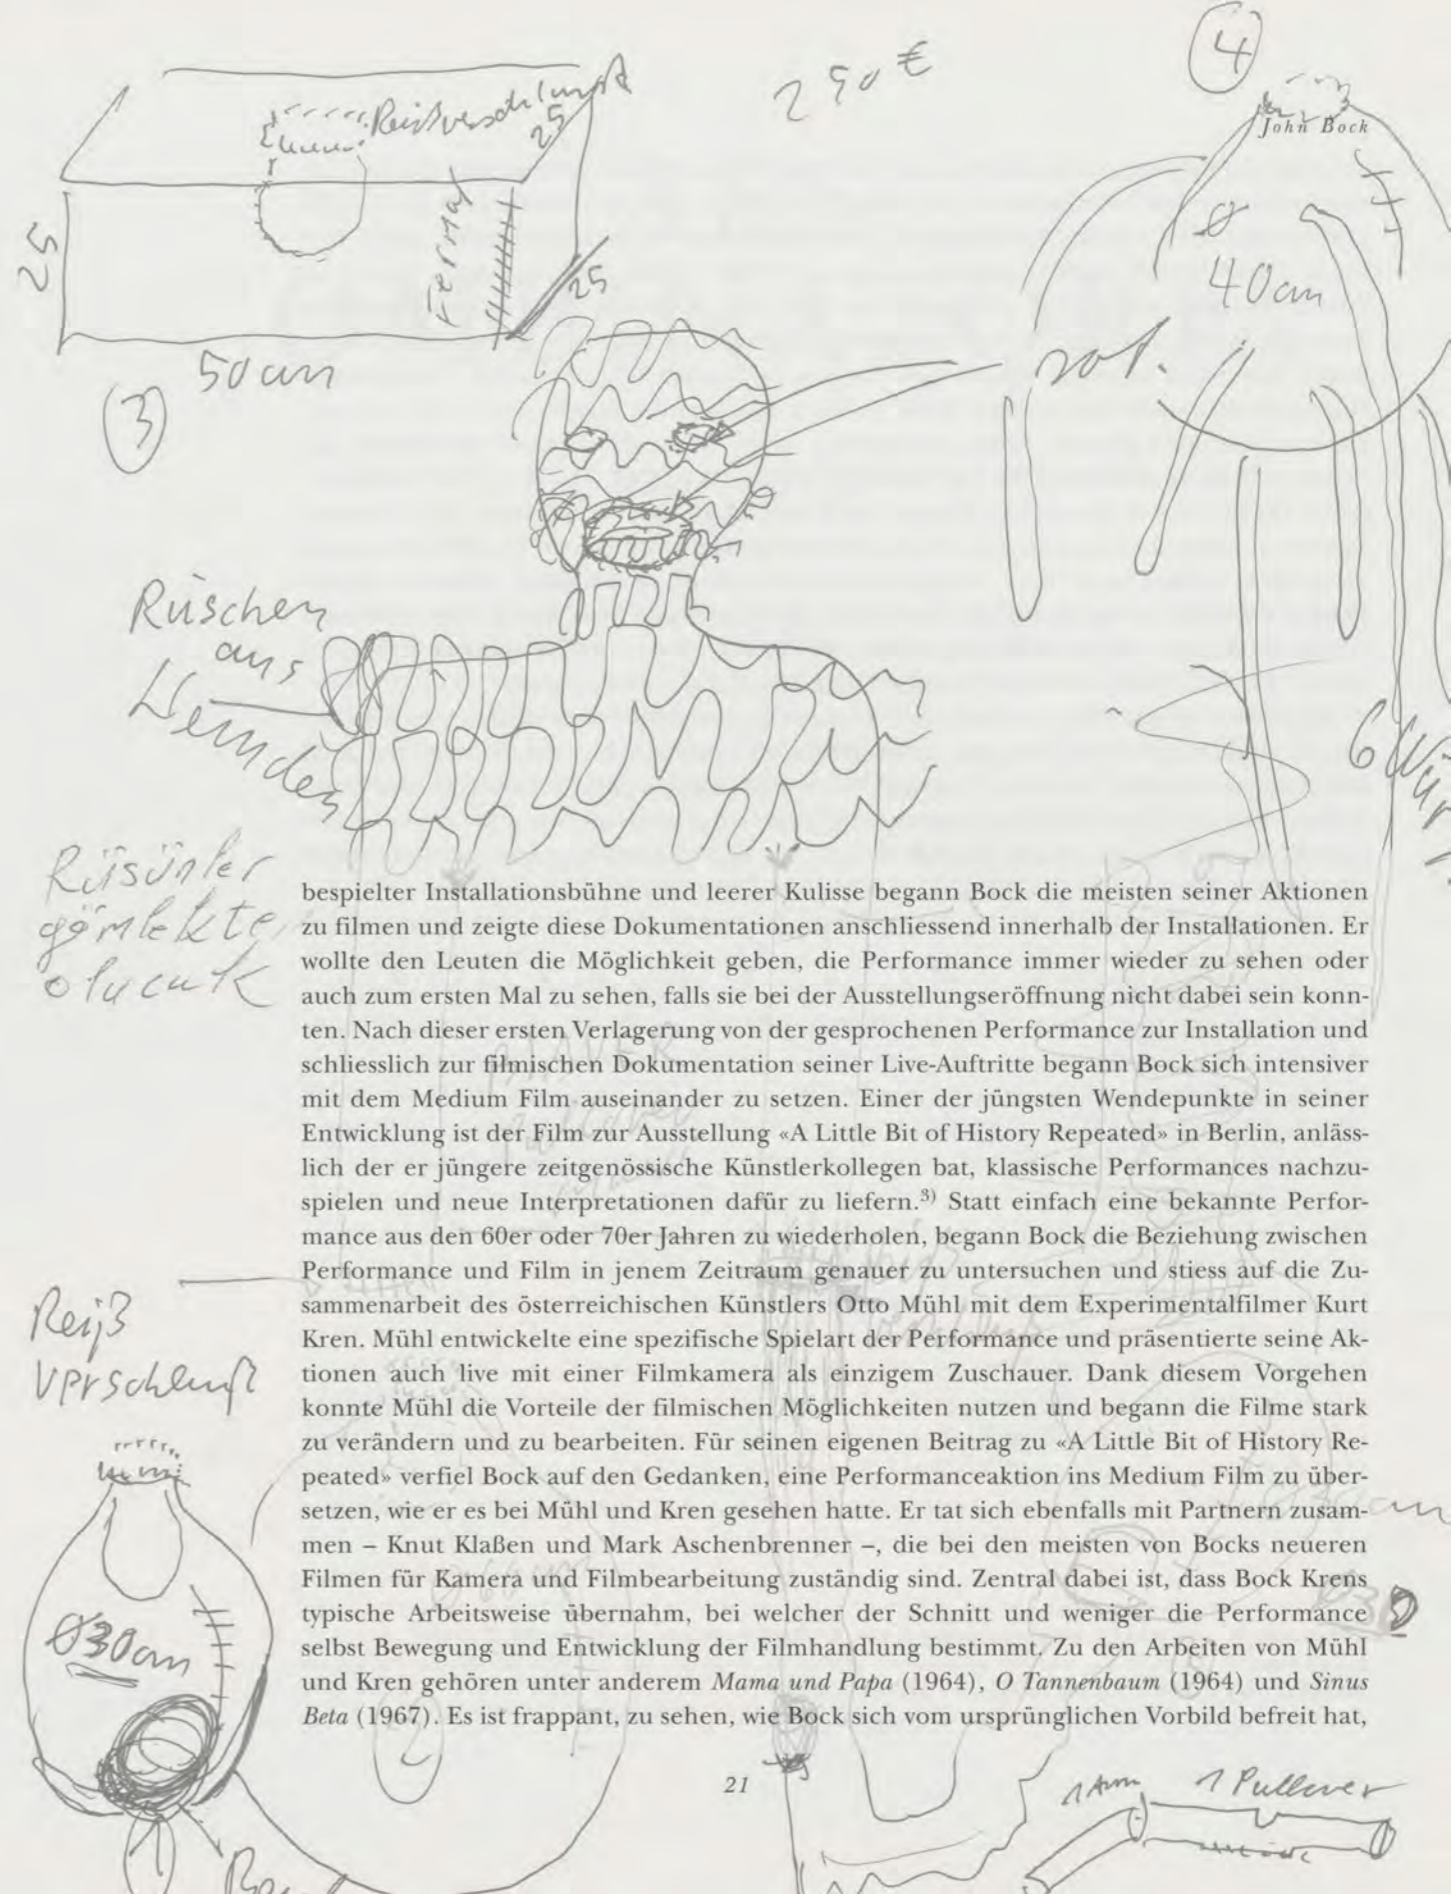 290 €
4
John Bock
Reißverschluß
25
25
25
50 cm
3
ø
40 cm
rot.
Rüschen
aus
Hemden
6
olacak
bespielter Installationsbühne und leerer Kulisse begann Bock die meisten seiner Aktionen
zu filmen und zeigte diese Dokumentationen anschliessend innerhalb der Installationen. Er
wollte den Leuten die Möglichkeit geben, die Performance immer wieder zu sehen oder
auch zum ersten Mal zu sehen, falls sie bei der Ausstellungseröffnung nicht dabei sein konn-
ten. Nach dieser ersten Verlagerung von der gesprochenen Performance zur Installation und
schliesslich zur filmischen Dokumentation seiner Live-Auftritte begann Bock sich intensiver
mit dem Medium Film auseinander zu setzen. Einer der jüngsten Wendepunkte in seiner
Entwicklung ist der Film zur Ausstellung «A Little Bit of History Repeated» in Berlin, anläss-
lich der er jüngere zeitgenössische Künstlerkollegen bat, klassische Performances nachzu-
spielen und neue Interpretationen dafür zu liefern.³⁾ Statt einfach eine bekannte Perfor-
mance aus den 60er oder 70er Jahren zu wiederholen, begann Bock die Beziehung zwischen
Performance und Film in jenem Zeitraum genauer zu untersuchen und stiess auf die Zu-
sammenarbeit des österreichischen Künstlers Otto Mühl mit dem Experimentalfilmer Kurt
Kren. Mühl entwickelte eine spezifische Spielart der Performance und präsentierte seine Ak-
tionen auch live mit einer Filmkamera als einzigem Zuschauer. Dank diesem Vorgehen
konnte Mühl die Vorteile der filmischen Möglichkeiten nutzen und begann die Filme stark
zu verändern und zu bearbeiten. Für seinen eigenen Beitrag zu «A Little Bit of History Re-
peated» verfiel Bock auf den Gedanken, eine Performanceaktion ins Medium Film zu über-
setzen, wie er es bei Mühl und Kren gesehen hatte. Er tat sich ebenfalls mit Partnern zusam-
men – Knut Klaßen und Mark Aschenbrenner –, die bei den meisten von Bocks neueren
Filmen für Kamera und Filmbearbeitung zuständig sind. Zentral dabei ist, dass Bock Krens
typische Arbeitsweise übernahm, bei welcher der Schnitt und weniger die Performance
selbst Bewegung und Entwicklung der Filmhandlung bestimmt. Zu den Arbeiten von Mühl
und Kren gehören unter anderem Mama und Papa (1964), O Tannenbaum (1964) und Sinus
Beta (1967). Es ist frappant, zu sehen, wie Bock sich vom ursprünglichen Vorbild befreit hat,
Reiß
verschluß
Ø30cm
2
1
21
1 Arm
1 Pullover